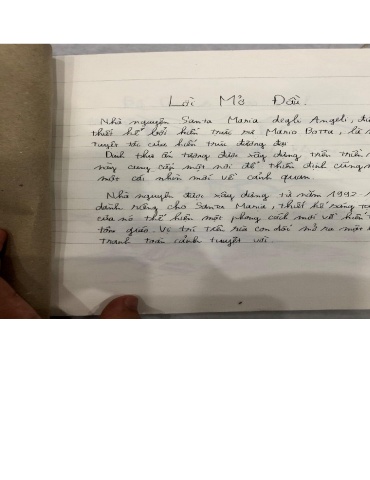 Lời Mở Đầu.
Nhà nguyện Santa Maria degli Angeli, đư
thiết kế bởi kiến trúc sư Mario Botta, là
tuyệt tác của kiến trúc đương đại
Danh thự ấn tượng được xây dựng trên triền
này cung cấp một nơi để thiền định cũng
một cái nhìn mới về cảnh quan.
Nhà nguyện được xây dựng từ năm 1992 -
dành riêng cho Santa Maria, thiết kế
của nó thể hiện một phong cách mới về kiến
tôn giáo. Vị trí trên rìa con đồi mở ra một
tranh toàn cảnh tuyệt vời.